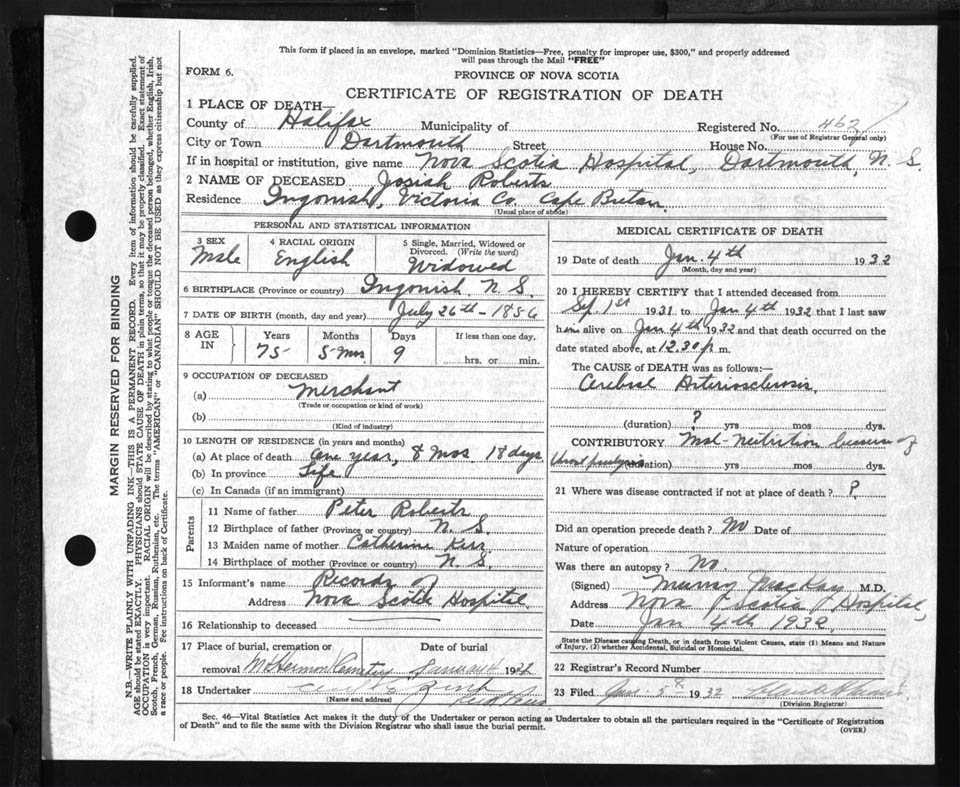 This form if placed in an envelope, marked "Dominion Statistics—Free, penalty for improper use, $300," and properly addressed
will pass through the Mail "FREE"
FORM 6.
PROVINCE OF NOVA SCOTIA
CERTIFICATE OF REGISTRATION OF DEATH
1 PLACE OF DEATH—
County of Halifax Municipality of Registered No. 462
(For use of Registrar General only)
City or Town Dartmouth Street House No.
If in hospital or institution, give name Nova Scotia Hospital, Dartmouth, N. S.
2 NAME OF DECEASED Josiah Roberts
Residence Ingonish, Victoria Co. Cape Breton.
(Usual place of abode)
PERSONAL AND STATISTICAL INFORMATION
3 SEX 4 RACIAL ORIGIN 5 Single, Married, Widowed or
Divorced. (Write the word)
Male English Widowed
6 BIRTHPLACE (Province or country) Ingonish. N. S.
7 DATE OF BIRTH (month, day and year) July 26th - 1856
8 AGE IN Years Months Days If less than one day,
75 5 mos 9 hrs. or min.
9 OCCUPATION OF DECEASED
(a) Merchant
(Trade or occupation or kind of work)
(b)
(Kind of industry)
10 LENGTH OF RESIDENCE (in years and months)
(a) At place of death One year, 8 mos. 18 days
(b) In province Life
(c) In Canada (if an immigrant)
Parents
11 Name of father Peter Roberts
12 Birthplace of father (Province or country) N. S.
13 Maiden name of mother Catherine Kerr
14 Birthplace of mother (Province or country) N. S.
15 Informant's name Records of
Address Nova Scotia Hospital
16 Relationship to deceased
17 Place of burial, cremation or Date of burial
removal Mt Hermon Cemetery January 4 193
18 Undertaker
(Name and address)
MEDICAL CERTIFICATE OF DEATH
19 Date of death Jan. 4th 1932
(Month, day and year)
20 I HEREBY CERTIFY that I attended deceased from
Sp. 1st 1931 to Jan 4th 1932 that I last saw
him alive on Jan 4th 1932 and that death occurred on
date stated above, at 12.30 p. m.
The CAUSE of DEATH was as follows:—
Cerebral Arteriosclerosis
(duration) ? yrs mos dys.
CONTRIBUTORY Mal-nutrition because of
throat paralysis (duration) yrs mos dys.
21 Where was disease contracted if not at place of death? ?
Did an operation precede death? No Date of
Nature of operation
Was there an autopsy? No.
(Signed) Murray MacKay M.D.
Address Nova Scotia Hospital,
Date Jan 4th 1932
State the Disease causing Death, or in death from Violent Causes, state (1) Means and Nature
of Injury, (2) whether Accidental, Suicidal or Homicidal.
22 Registrar's Record Number
23 Filed Jan 5th 1932
(Division Registrar)
Sec. 46—Vital Statistics Act makes it the duty of the Undertaker or person acting as Undertaker to obtain all the particulars required in the "Certificate of Registration
of Death" and to file the same with the Division Registrar who shall issue the burial permit.
(OVER)
MARGIN RESERVED FOR BINDING
N.B.—WRITE PLAINLY WITH UNFADING INK—THIS IS A PERMANENT RECORD. Every item of information should be carefully supplied.
AGE should be stated EXACTLY. PHYSICIANS should STATE CAUSE OF DEATH in plain terms, so that it may be properly classified. Exact statement of
OCCUPATION is very important. RACIAL ORIGIN will be described by stating to what people or tongue the deceased person belonged, whether English, Irish,
Scotch, French, German, Russian, Ruthenian, etc. The terms "AMERICAN" or "CANADIAN" SHOULD NOT BE USED as they express citizenship but not
a race or people. See instructions on back of Certificate.